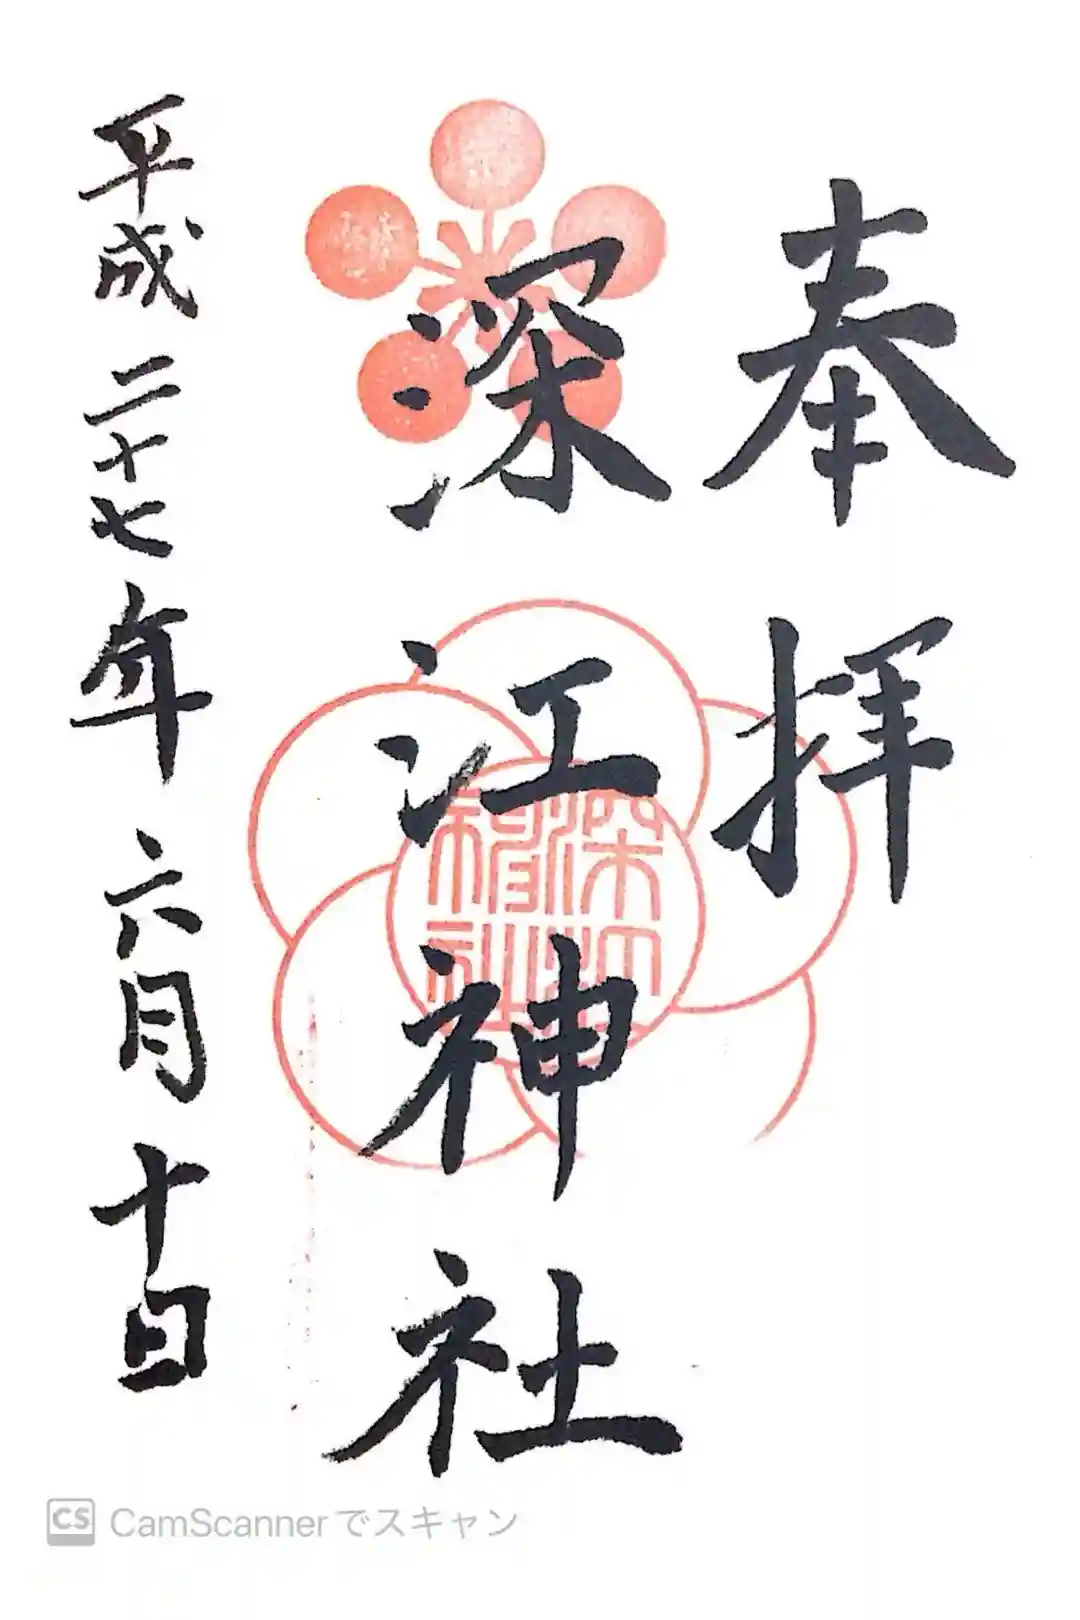 奉拝
深江神社
深江神社
平成二十七年六月十日
CS CamScannerでスキャン